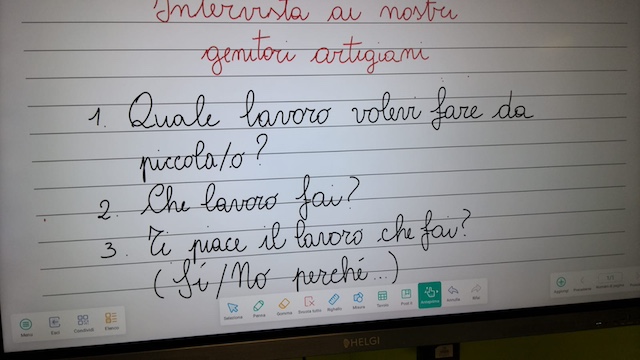 Intervista ai nostri
genitori artigiani
1. Quale lavoro volevi fare da
piccola/o?
2. Che lavoro fai?
3. Ti piace il lavoro che fai?
(Sí/No perché...)
Menu Esci Condividi Elenco Seleziona Penna Gomma Righello Misura Post it Annulla Rifai Aggiungi 1/1
HELGI